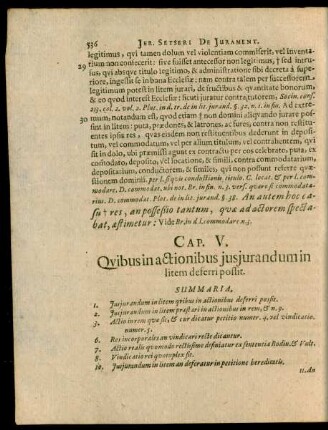 536 JUR. SETSERI DE JURAMENT.
legitimus, qui tamen dolum vel violentiam commiserit, vel inventa-
29 rium non confecerit: sive fuisset antecessor non legitimus, † sed intru-
sus, qui absque titulo legitimo, & administratione sibi decreta à supe-
riore, ingessit se in bona Ecclesiæ: nam contra talem per successorem
legitimum poterit in litem jurari, de fructibus & quantitate bonorum,
& eo quod interest Ecclesiæ: sicut juratur contra tutorem,
30 num, notandum est, quod etiam † non domini aliquando jurare pos-
sint in litem: puta, prædones, & latrones, ac fures, contra non restitu-
entes ipsis res, quas eisdem non restituentibus dederunt in deposi-
tum, vel commodatum, vel per alium titulum, vel contrahentem, qui
sit in dolo, ubi præmissi agunt ex contractu per eos celebrato, puta, ex
custodato, deposito, vel locatione, & simili, contra commodatarium,
depositarium, conductorem, & similes, qui non possunt referre quæ-
stionem dominii.
An autem hoc ca-
su † res, an possessio tantum, quæ ad actorem specta-
bat, æstimetur:
CAP. V.
Qvibus in actionibus jusjurandum in
litem deferri possit.
SUMMARIA.
1. Jusjurandum in litem qvibus in actionibus deferri possit.
2. Jusjurandum in litem præstari in actionibus in rem, & n. 9.
3. Actio in rem quæ sit, & cur dicatur petitio numer. 4. vel vindicatio
numer. 5.
6. Res incorporales an vindicari recte dicantur.
7. Actio realis quomodo rectissime definiatur ex sententia
8. Vindicatio rei quotuplex sit.
10. Jusjurandum in litem an deferatur in petitione hereditatis.
11. An